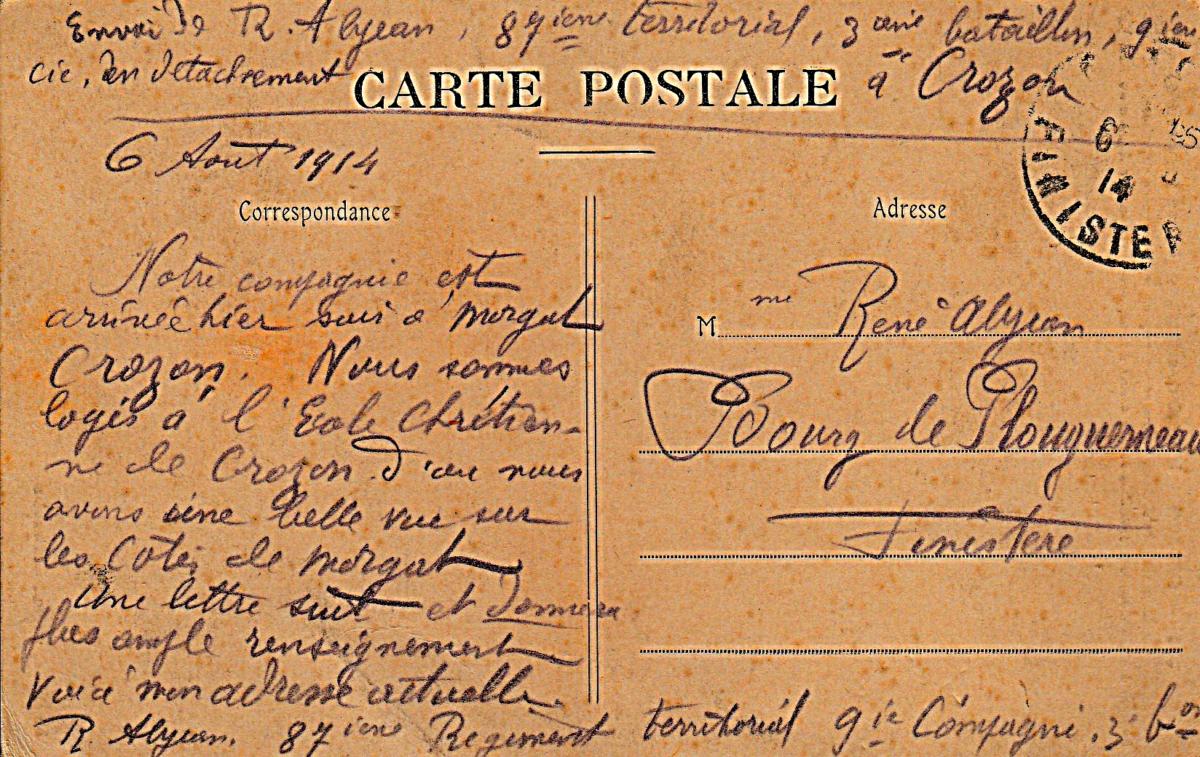 Envoi de R. Abjean, 87ième territorial, 3ème bataillon, 9ièm
cie, en détachement à Crozon
CARTE POSTALE
6 Aout 1914
FINISTE
6
14
Correspondance
Notre compagnie est
arrivée hier soir à Morgat
Crozon. Nous sommes
logés à l'Ecole Chrétien-
ne de Crozon d'ou nous
avons une belle vue sur
les Cotes de Morgat
Une lettre suit et donnera
plus ample renseignement
Voici mon adresse actuelle.
R. Abjean. 87ième Regiment territorial 9ie Compagnie. 3e bon
Adresse
M me René Abjean
Bourg de Plouguerneau
Finistère